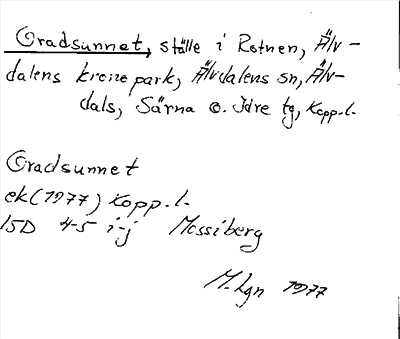 Oradsunnet, ställe i Rotnen, Älv-
dalens kronopark, Älvdalens sn, Älv-
dals, Särna o. Idre tg, Kopp.l.
Oradsunnet
ek (1977) Kopp.l.
15D 4-5 i-j Mossiberg
M. Lgn 1977